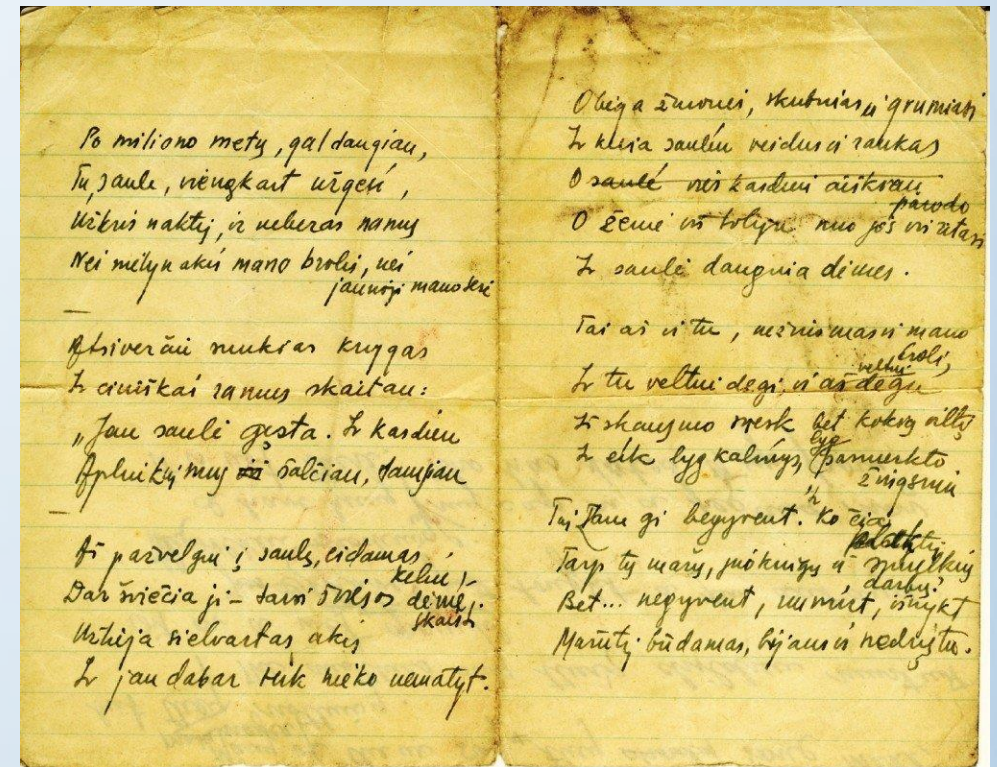 Po miliono metų, gal daugiau,
Tu, saule, vieną kart užgesi,
Užkris naktis, ir neberas namų
Nei mėlynakis mano brolis, nei
jaunoji mano sesė
Atsiverčiu sunkias knygas
Ir ciniškai ramus skaitau:
„Jau saulė gęsta. Ir kasdien
Aplinkui mus šalčiau, tamsiau
Aš pažvelgiu į saulę, eidamas
keliu,
Dar šviečia ji – tarsi šviesos dėmė,
skaisti
Užlieja sielvartas akis
Ir jau dabar tenka nieko nematyt.
O bėga žmonės, skubinas ir grumiasi
Ir kelia saulėn veidus ir rankas
O saulė vis kasdieną aiškiau
parodo
O žemė vis tolyn nuo jos vis ritasi
Ir saulėj daugėja dėmės.
Tai aš ir tu, nežinomasis mano
broli,
veltui
Ir tu veltui degi, ir aš degu
Iš skausmo mesk bet kokią viltį
Ir eik lyg kalinys, pasmerkto
lyg
žingsniu
Ir
Tai kam gi begyvent. Ko čia
Tarp tų mažų, juokingų ir smulkių
darbų?
Bet... negyvent, numirt, išnykt
Mažutis būdamas, bijausi ir nedrįstu.